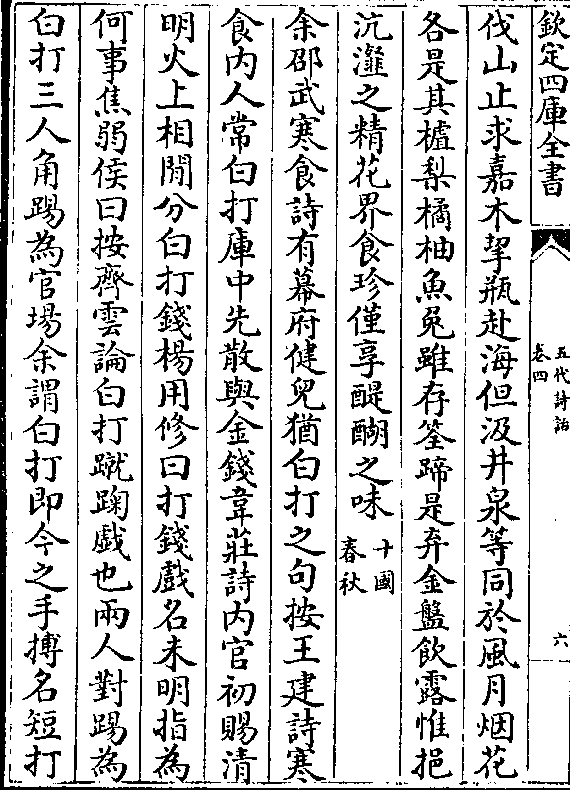 欽定四庫全書
五代詩話
卷四
六
伐山止求嘉木挈瓶赴海但汲井泉等同於風月烟花
各是其樝梨橘柚魚兎雖存筌蹄是弃金盤飲露惟挹
沆瀣之精花界食珍僅享醍醐之味
十國
春秋
余邵武寒食詩有幕府健兒猶白打之句按王建詩寒
食内人常白打庫中先散與金錢韋莊詩内官初賜清
明火上相閒分白打錢楊用修曰打錢戲名未明指為
何事焦弱侯曰按齊雲論白打蹴踘戲也兩人對踢為
白打三人角踢為官場余謂白打即今之手搏名短打